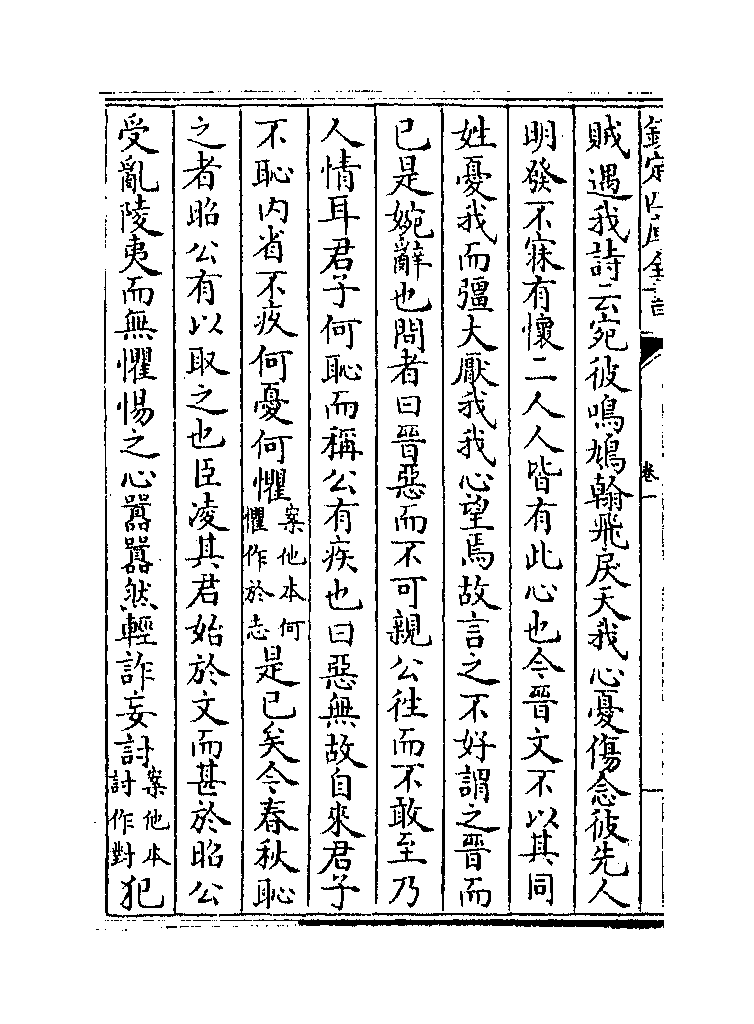 欽定四庫全書
卷一
賊遇我詩云宛彼鳴鳩翰飛戾天我心憂傷念彼先人
明發不寐有懷二人人皆有此心也今晉文不以其同
姓憂我而彊大厭我我心望焉故言之不好謂之晉而
已是婉辭也問者曰晉惡而不可親公徃而不敢至乃
人情耳君子何恥而稱公有疾也曰惡無故自來君子
不恥内省不疚何憂何懼案他本何懼作於志是已矣今春秋恥
之者昭公有以取之也臣凌其君始於文而甚於昭公
受亂陵夷而無懼惕之心囂囂然輕詐妄討案他本討作對犯